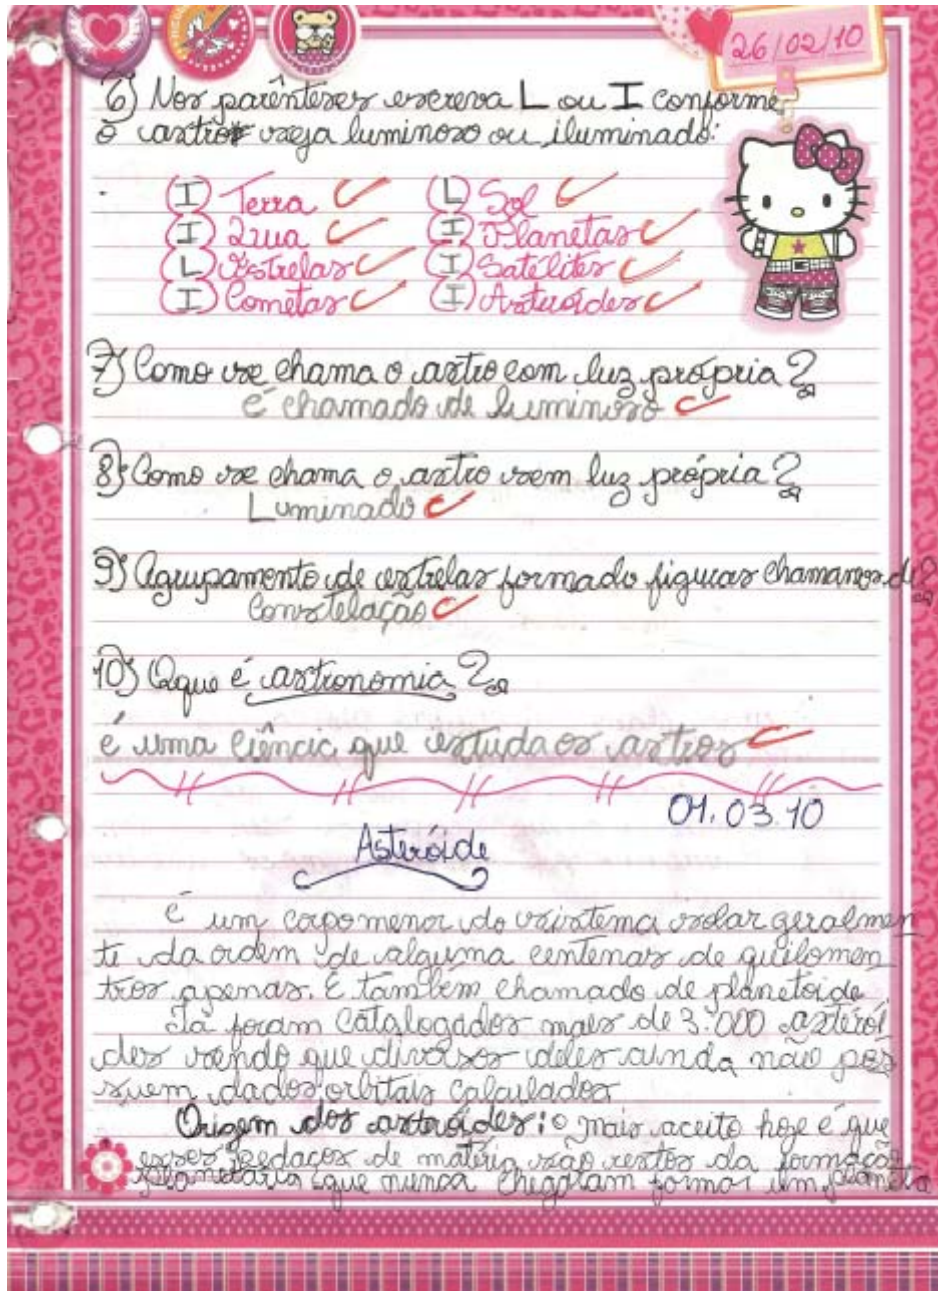 26/02/10
6) Nos parênteses escreva L ou I conforme
o astro seja luminoso ou iluminado:
(I) Terra (L) Sol
(I) Lua (I) Planetas
(L) Estrelas (I) Satélites
(I) Cometas (I) Asteróides
7) Como se chama o astro com luz própria?
é chamado de luminoso
8) Como se chama o astro sem luz própria?
Luminado
9) Agrupamento de estrelas formado figuras chamamos de?
Constelação
10) Oque é astronomia?
é uma ciência que estuda os astros
01.03.10
Asteróide
é um corpo menor do sistema solar geralmen
te da ordem de alguma centenas de quilomen
tros apenas. É também chamado de planetoide
Já foram catalogados mais de 3.000 asterói
des sendo que diversos deles ainda não pos
suem dados orbitais calculados
Origem dos asteróides: o mais aceito hoje é que
esses pedaços de matéria são restos da formação
planetária que nunca chegaram formar um planeta